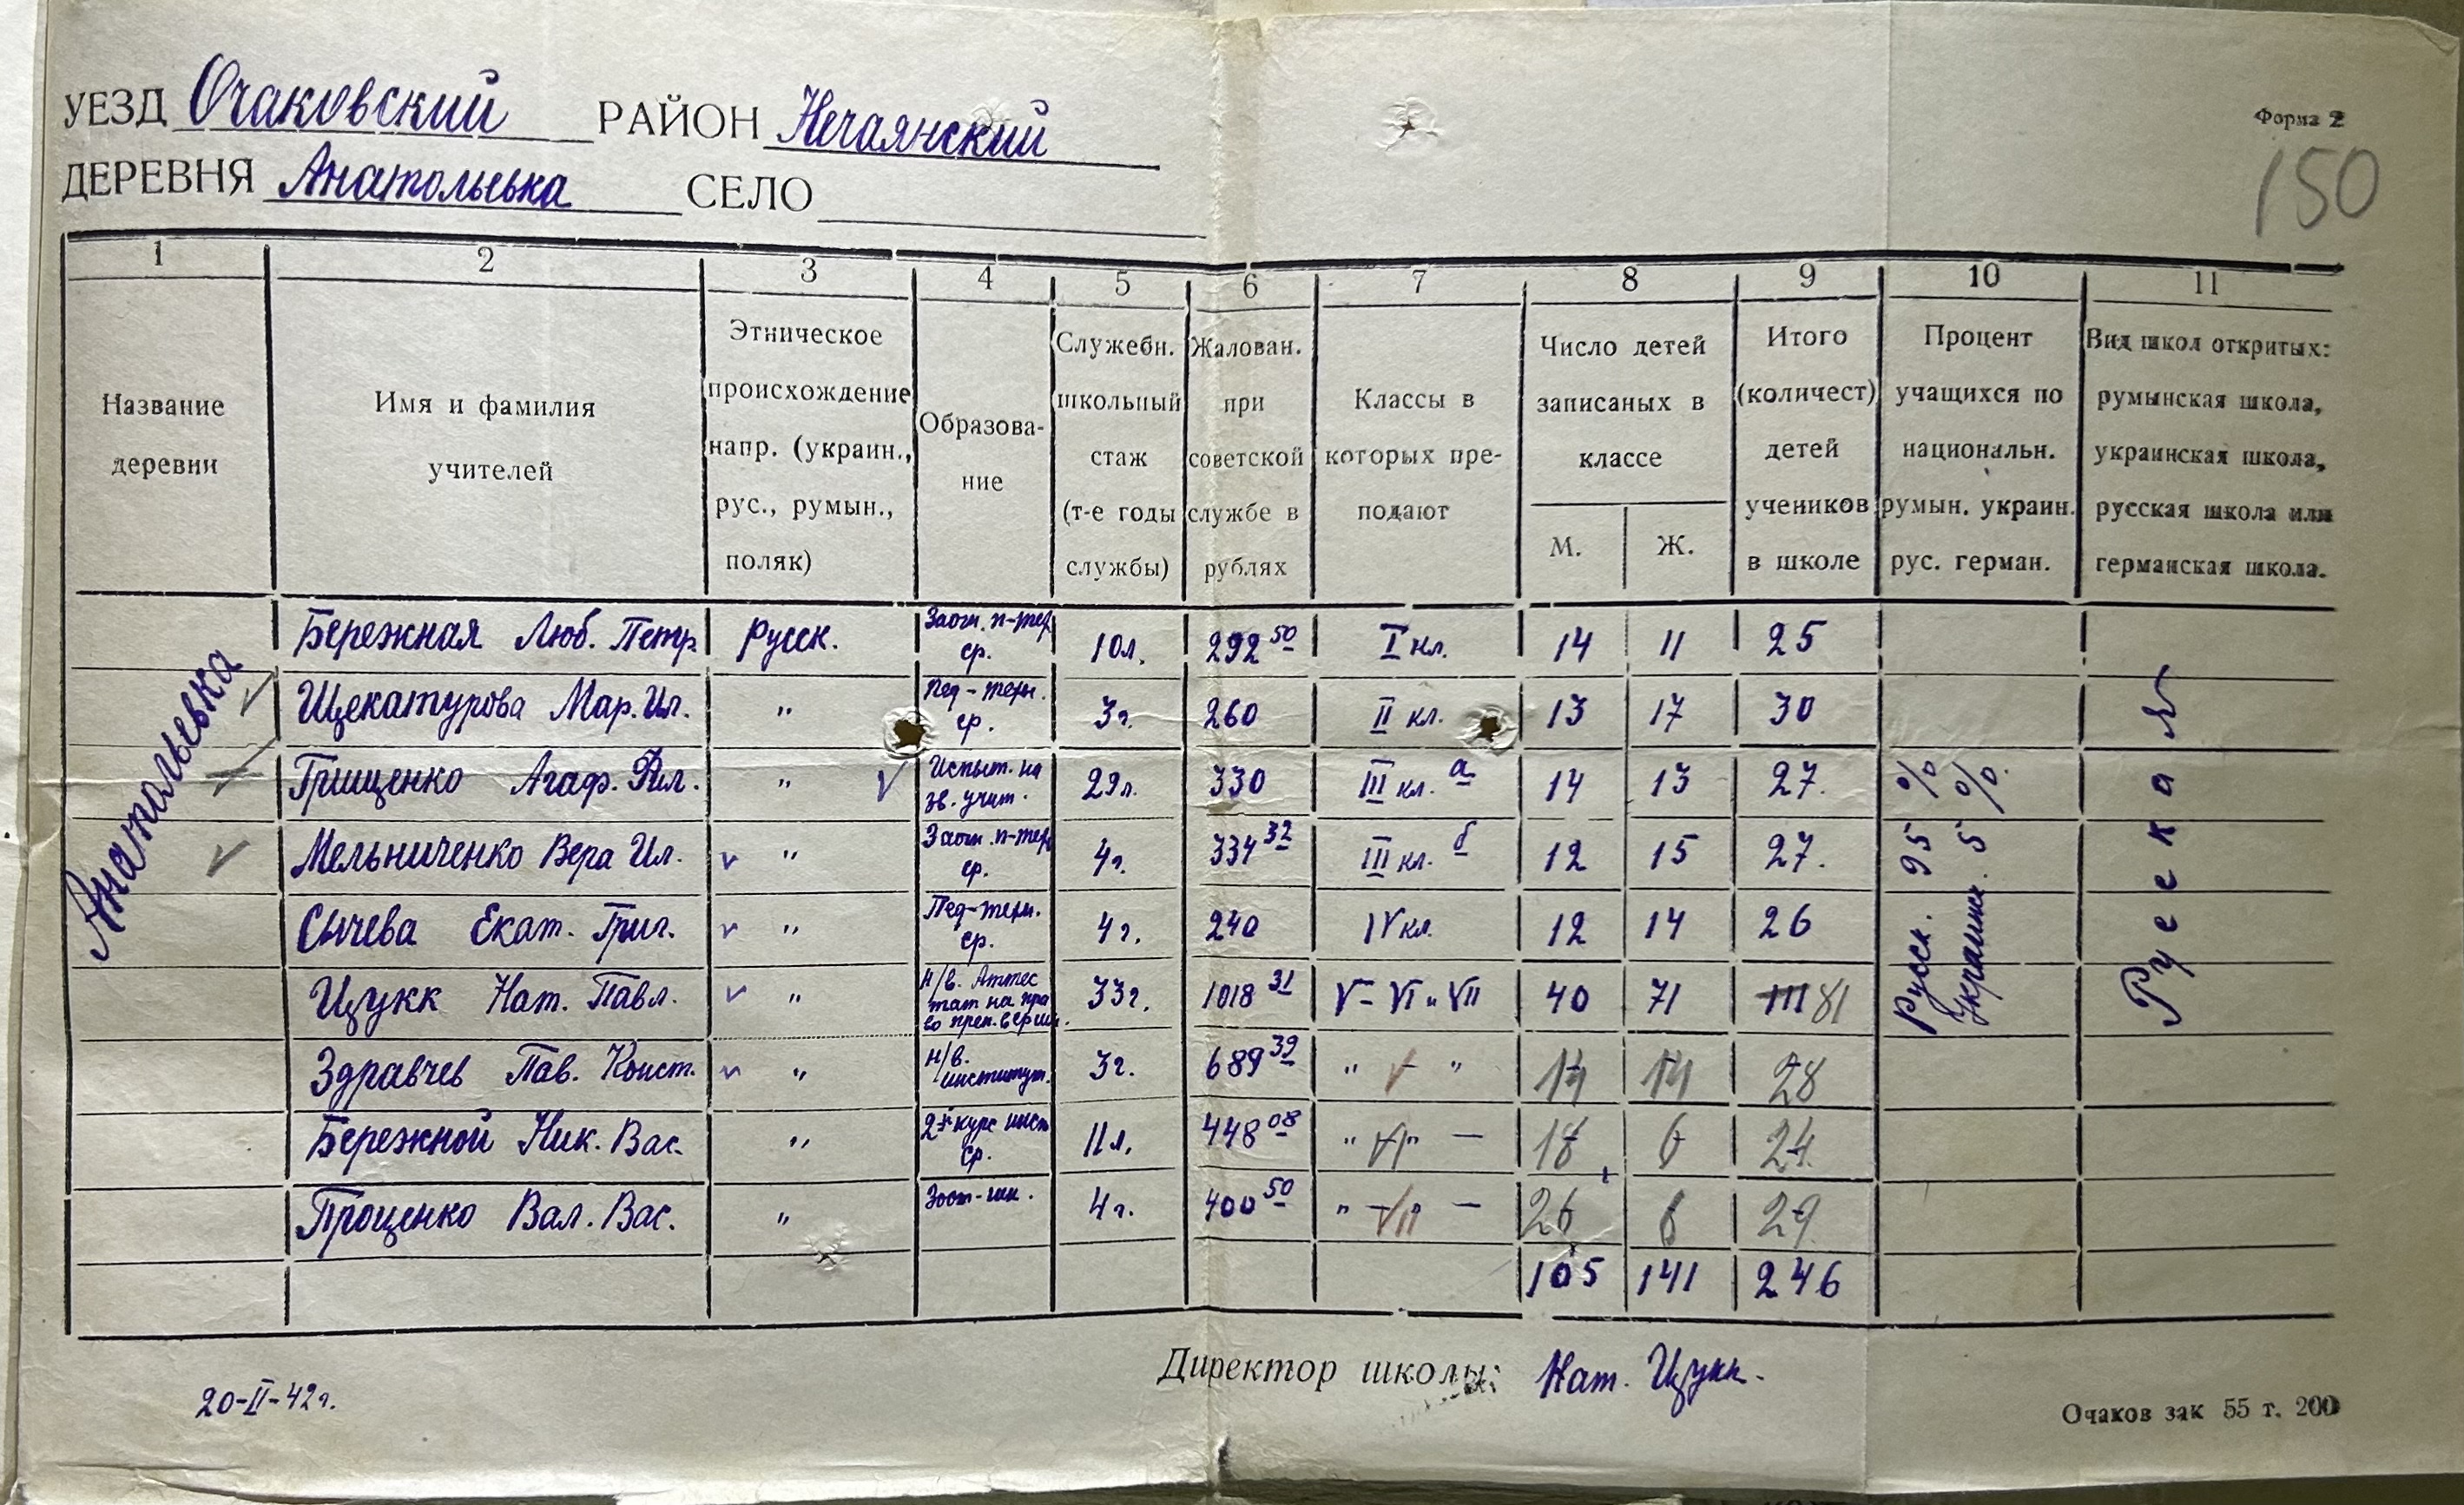 УЕЗД Очаковский РАЙОН Нечаянский
Форма 2
150
ДЕРЕВНЯ Анатольевка СЕЛО
1 2 3 4 5 6 7 8 9 10 11
Название деревни
Имя и фамилия учителей
Этническое происхождение напр. (украин., рус., румын., поляк)
Образова-ние
Служебн. школьный стаж (т-е годы службы)
Жалован. при советской службе в рублях
Классы в которых пре-подают
Число детей записаных в классе
М. Ж.
Итого (количест) детей учеников в школе
Процент учащихся по национальн. румын. украин. рус. герман.
Вид школ откритых: румынская школа, украинская школа, русская школа или германская школа.
Анатольевка
Бережная Люб. Петр. Русск. Заочн. п-тех ср. 10л. 292 50 I кл. 14 11 25
Щекатурова Мар. Ил. " Пед-техн. ср. 3г. 260 II кл. 13 17 30
Грищенко Агаф. Фил. " Испыт. на зв. учит. 29л. 330 III кл. а 14 13 27.
Мельниченко Вера Ил. " Заочн. п-тех ср. 4г. 334 32 III кл. б 12 15 27.
Сычева Екат. Григ. " Пед-техн. ср. 4г. 240 IV кл. 12 14 26
Цукк Нат. Павл. " н/в. Аттес тат на пра во преп. 33г. 1018 31 V - VI и VII 40 71 111 81
Здравчев Пав. Конст. " н/в. институт. 3г. 689 39 " V " 14 14 28
Бережной Ник. Вас. " 2й курс инст ср. 11л. 448 08 " VI " — 18 6 24
Проценко Вал. Вас. " 4г. 400 50 " VII " — 26 29
105 141 246
Русск. 95%
Украинск. 5%.
Русская
Директор школы: Нат. Цукк.
20-II-42г.
Очаков зак 55 т. 200